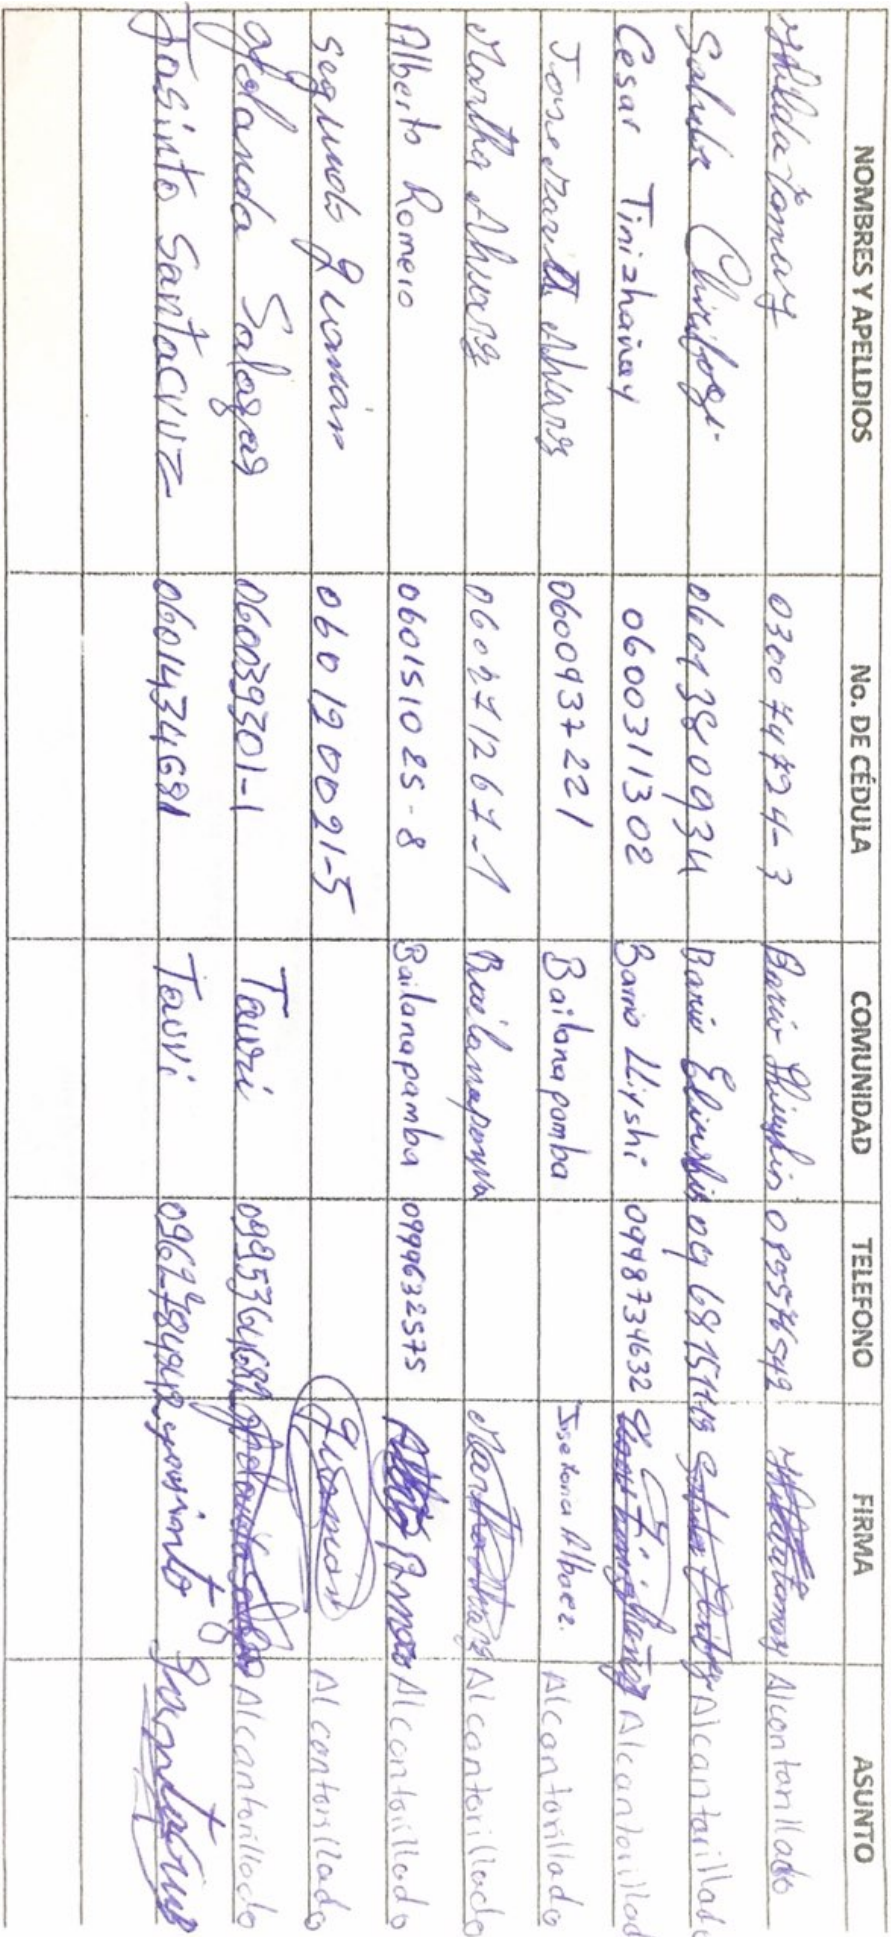 NOMBRES Y APELLDIOS No. DE CÉDULA COMUNIDAD TELEFONO FIRMA ASUNTO
Hilda Tamay 030074724-3 Barrio 0 Alcantarillado
Saluka Chiriboga 0601380934 Barrio Alcantarillado
Cesar Tinizhañay 0600311302 Barrio Lliyshi 0998734632 Alcantarillad
Jose Maria Alvarez 0600937221 Bailanapamba Jose Maria Albaez. Alcantarillado
Martha Alvarez 060271267-1 Bailanapamba Martha Alcantarillado
Alberto Romero 060151025-8 Bailanapamba 0999632575 Alcantarillado
Segundo Guaman 060120021-5 Guaman Alcantarillado
Yolanda Salazar 060039301-1 Tauri Alcantarillado
Jasinto Santacruz 0601434681 Tauri yasinto Santacruz